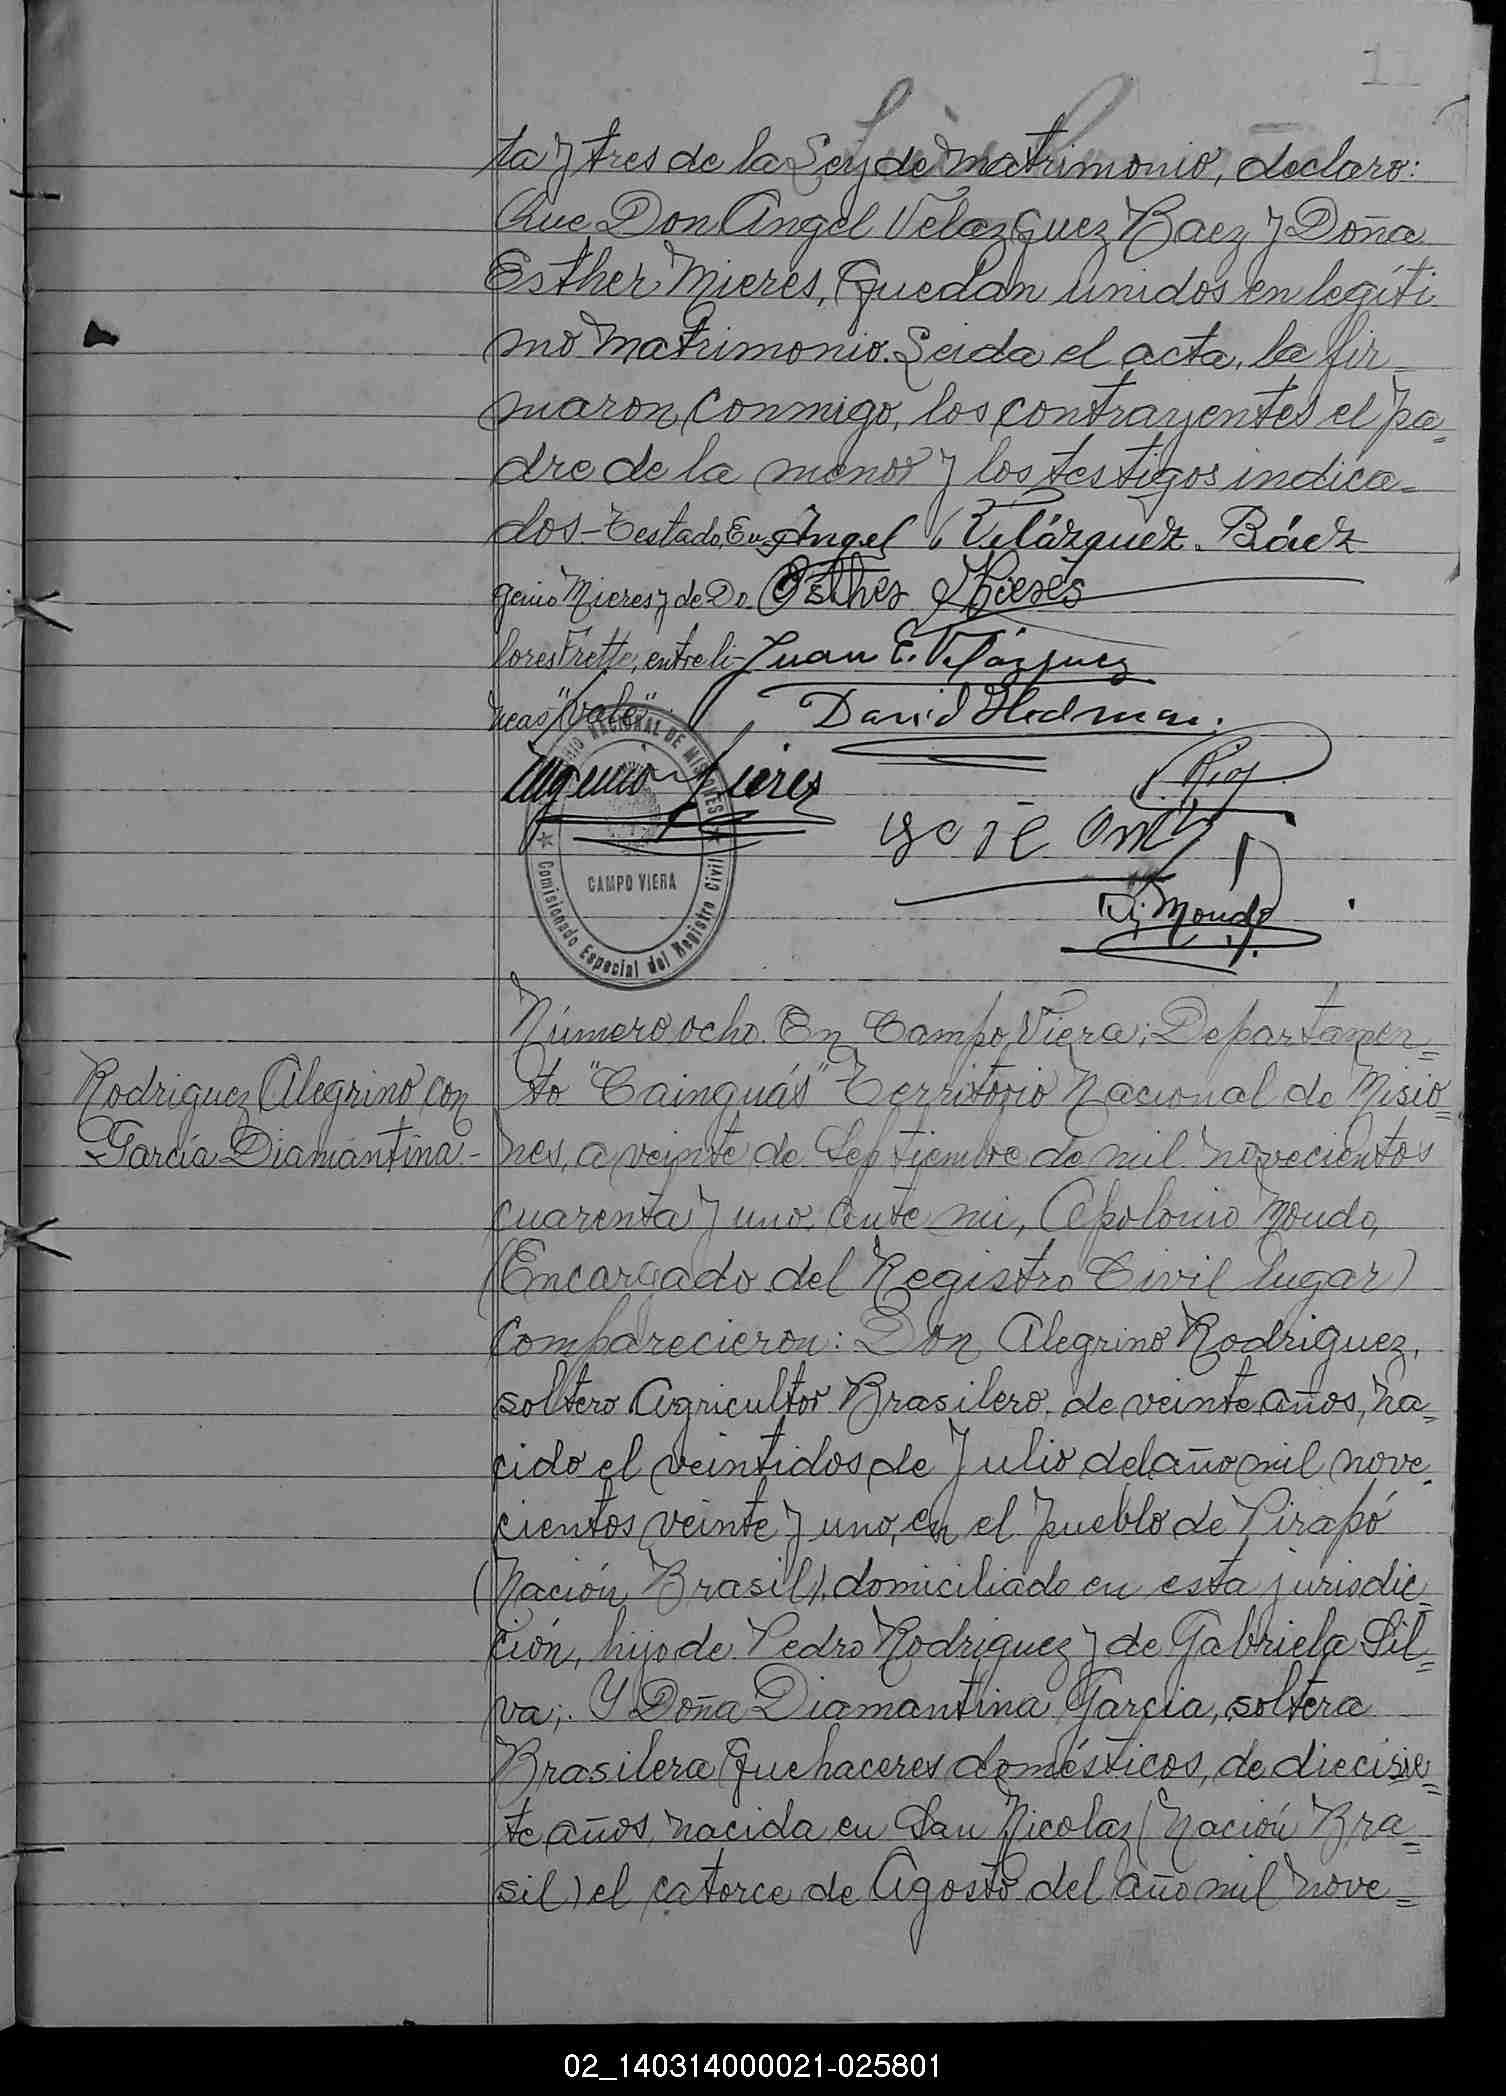 11
ta y tres de la Ley de Matrimonio, declaro:
Que Don Angel Velazquez Baez y Doña
Esther Mieres, Quedan unidos en legíti
mo Matrimonio. Leida el acta, la fir-
maron, conmigo, los contrayentes el pa=
dre de la menor y los testigos indica=
dos - Testado, Eu= Angel Velázquez Báez
genio Mieres y de Do Esther Mieres
lores Frette, entre li- Juan E. Velázquez
neas "Vale" David Hedman.
Eugenio Mieres
NACIONAL DE MISIONES
CAMPO VIERA
Comisionado Especial del Registro Civil
Mondo
Número ocho. En Campo Viera; Departamen=
Rodriguez Alegrino con
Garcia Diamantina.-
to "Cainguás" Territorio Nacional de Misio=
nes, a veinte de Septiembre de mil novecientos
cuarenta y uno, ante mi, Apolonio Mondo,
(Encargado del Registro Civil lugar)
Comparecieron: Don Alegrino Rodriguez,
soltero Agricultor Brasilero, de veinte años, na=
cido el veintidos de Julio del año mil nove=
cientos veinte y uno, en el pueblo de Pirapó
(Nación Brasil), domiciliado en esta jurisdic=
ción, hijo de Pedro Rodriguez y de Gabriela Sil=
va; Y Doña Diamantina Garcia, soltera
Brasilera Quehaceres domésticos, de diecisie=
te años, nacida en San Nicolaz (Nación Bra=
sil) el catorce de Agosto del año mil nove=
02_140314000021-025801